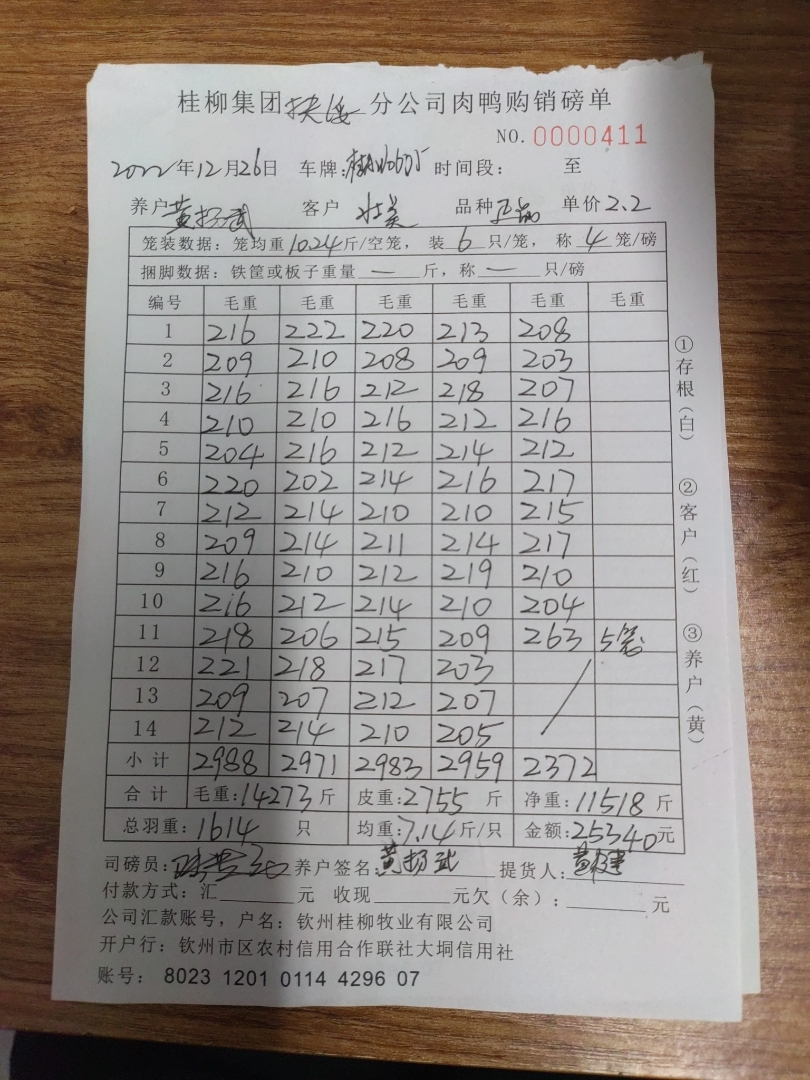 桂柳集团扶绥分公司肉鸭购销磅单
NO. 0000411
2022年12月26日 车牌: 时间段: 至
养户黄扬武 客户壮美 品种正品 单价2.2
笼装数据: 笼均重10.24斤/空笼, 装6只/笼, 称4笼/磅
捆脚数据: 铁筐或板子重量—斤, 称—只/磅
编号 毛重 毛重 毛重 毛重 毛重 毛重
1 216 222 220 213 208
2 209 210 208 209 203
3 216 216 212 218 207
4 210 210 216 212 216
5 204 216 212 214 212
6 220 202 214 216 217
7 212 214 210 210 215
8 209 214 211 214 217
9 216 210 212 219 210
10 216 212 214 210 204
11 218 206 215 209 263 5笼
12 221 218 217 203
13 209 207 212 207
14 212 214 210 205
小计 2988 2971 2983 2959 2372
合计 毛重:14273斤 皮重:2755斤 净重:11518斤
总羽重:1614只 均重:7.14斤/只 金额:25340元
司磅员: 养户签名:黄扬武 提货人:
付款方式: 汇 元 收现 元欠(余): 元
公司汇款账号, 户名: 钦州桂柳牧业有限公司
开户行: 钦州市区农村信用合作联社大垌信用社
账号: 8023 1201 0114 4296 07
①存根(白) ②客户(红) ③养户(黄)